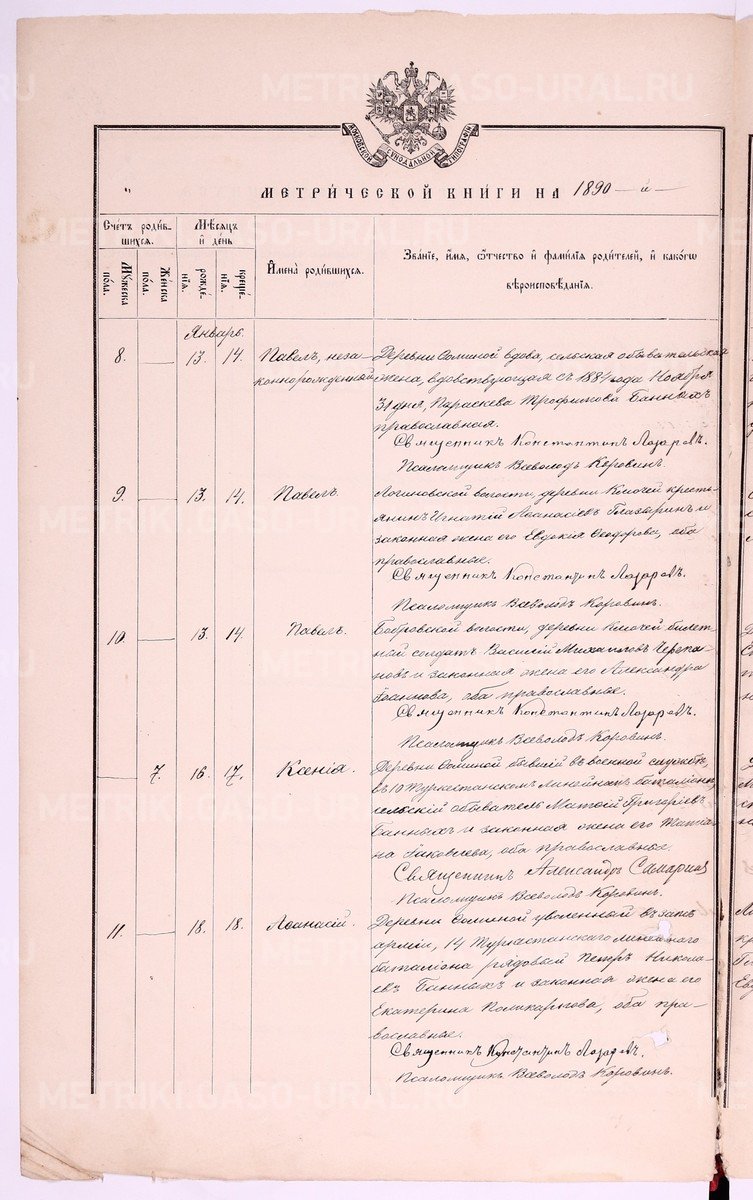 METRIKI.GASO-URAL.RU
МОСКОВСКОЙ СѴНОДАЛЬНОЙ ТИПОГРАФІИ
МЕТРИ́ЧЕСКОЙ КНИ́ГИ НА 1890 - й -
Сче́тъ роди́в-
шихся.
Мѣ́сяцъ
и҆ де́нь
И҆мена̀ роди́вшихся.
Зва́нїе, и҆́мѧ, ѻ҆́тчество и҆ фами́лїѧ роди́телей, и҆ како́гѡ
вѣроисповѣ́данїѧ.
Мꙋ́жеска
по́ла.
Же́нска
по́ла.
рожде́-
нїѧ.
креще́-
нїѧ.
Январь.
8. 13. 14. Павелъ, неза-
коннорожденной
Деревни Соминой вдова, сельская обывательская
жена, вдовствующая съ 1884 года Ноября
31 дня, Параскева Трофимова Банныхъ
православная.
Священникъ Константинъ Лазаревъ.
Псаломщикъ Всеволодъ Коровинъ.
9. 13. 14. Павелъ.
Логиновской волости, деревни Ключей кресть-
янинъ Игнатій Аѳанасіевъ Глазыринъ и
законная жена его Евдокія Ѳеодорова, оба
православные.
Священникъ Константинъ Лазаревъ.
Псаломщикъ Всеволодъ Коровинъ.
10. 13. 14. Павелъ.
Бобровской волости, деревни Ключей билет-
ный солдатъ Василій Михаиловъ Черепа-
новъ и законная жена его Александра
Іоаннова, оба православные.
Священникъ Константинъ Лазаревъ.
Псаломщикъ Всеволодъ Коровинъ.
7. 16. 17. Ксенія.
Деревни Соминой бывшій въ военной службѣ,
въ 10 Туркестанскомъ Линейномъ баталіонѣ,
сельскій обыватель Матѳій Григоріевъ
Банныхъ и законная жена его Татіа-
на Іаковлева, оба православные.
Священникъ Александръ Самарцов
Псаломщикъ Всеволодъ Коровинъ.
11. 18. 18. Аѳанасій.
Деревни Соминой уволенный въ запа
арміи, 14 Туркестанскаго линейнаго
баталіона рядовый Петръ Никола-
евъ Банныхъ и законная жена его
Екатерина Поликарпова, оба пра-
вославные.
Священникъ Константинъ Лазаревъ.
Псаломщикъ Всеволодъ Коровинъ.